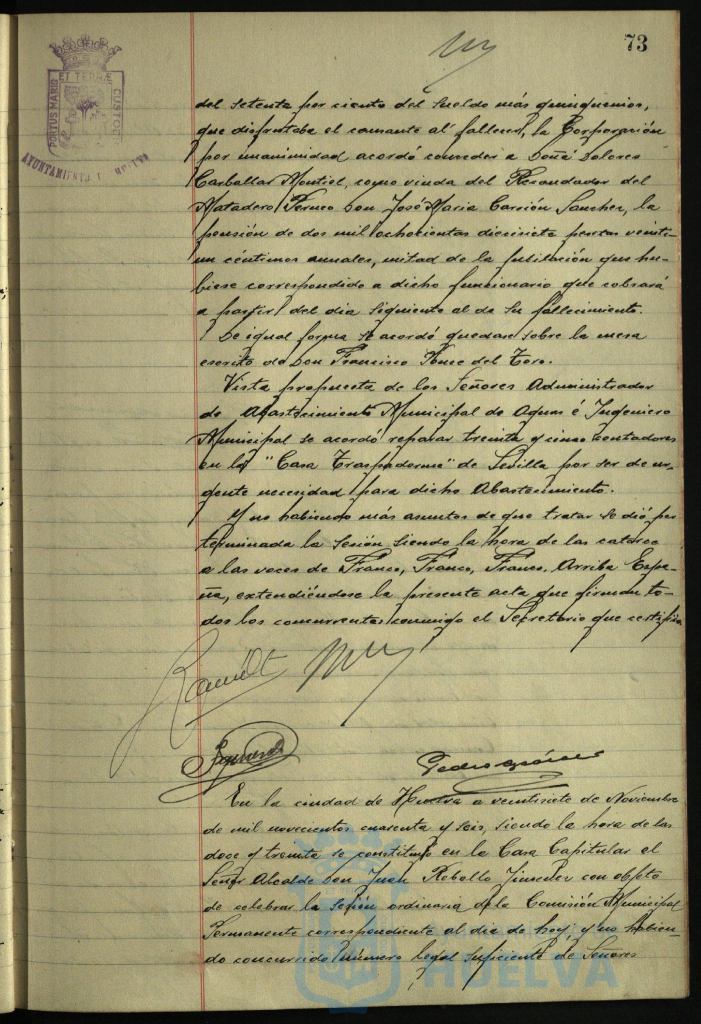 73
PORTUS MARIS
ET TERRÆ
CUSTODI
AYUNTAMIENTO HUELVA
del setenta por ciento del sueldo más quinquenios,
que disfrutaba el causante al fallecer, la Corporación
por unanimidad acordó conceder a Doña Dolores
Carballar Montiel, como viuda del Recaudador del
Matadero Perneo Don José Maria Carrión Sanchez, la
pensión de dos mil ochocientas diecisiete pesetas veinti-
un céntimos anuales, mitad de la jubilación que hu-
biese correspondido a dicho funcionario que cobrará
a partir del dia siguiente al de su fallecimiento.
De igual forma se acordó quedase sobre la mesa
escrito de Don Francisco Ponce del Toro.
Vista propuesta de los Señores Administrador
de Abastecimiento Municipal de Aguas é Ingeniero
Municipal se acordó reparar treinta y cinco contadores
en la "Casa" de Sevilla por ser de ur-
gente necesidad para dicho Abastecimiento.
Y no habiendo más asuntos de que tratar se dió por
terminada la sesión siendo la hora de las catorce
a las voces de Franco, Franco, Franco, Arriba Espa-
ña, extendiéndose la presente acta que firman to-
dos los concurrentes conmigo el Secretario que certifico
En la ciudad de Huelva a veintisiete de Noviembre
de mil novecientos cuarenta y seis, siendo la hora de las
doce y treinta se constituyó en la Casa Capitular el
Señor Alcalde Don Juan Rebollo Jimenez con objeto
de celebrar la sesión ordinaria de la Comisión Municipal
Permanente correspondiente al dia de hoy; y no habien-
do concurrido número legal suficiente de Señores
HUELVA